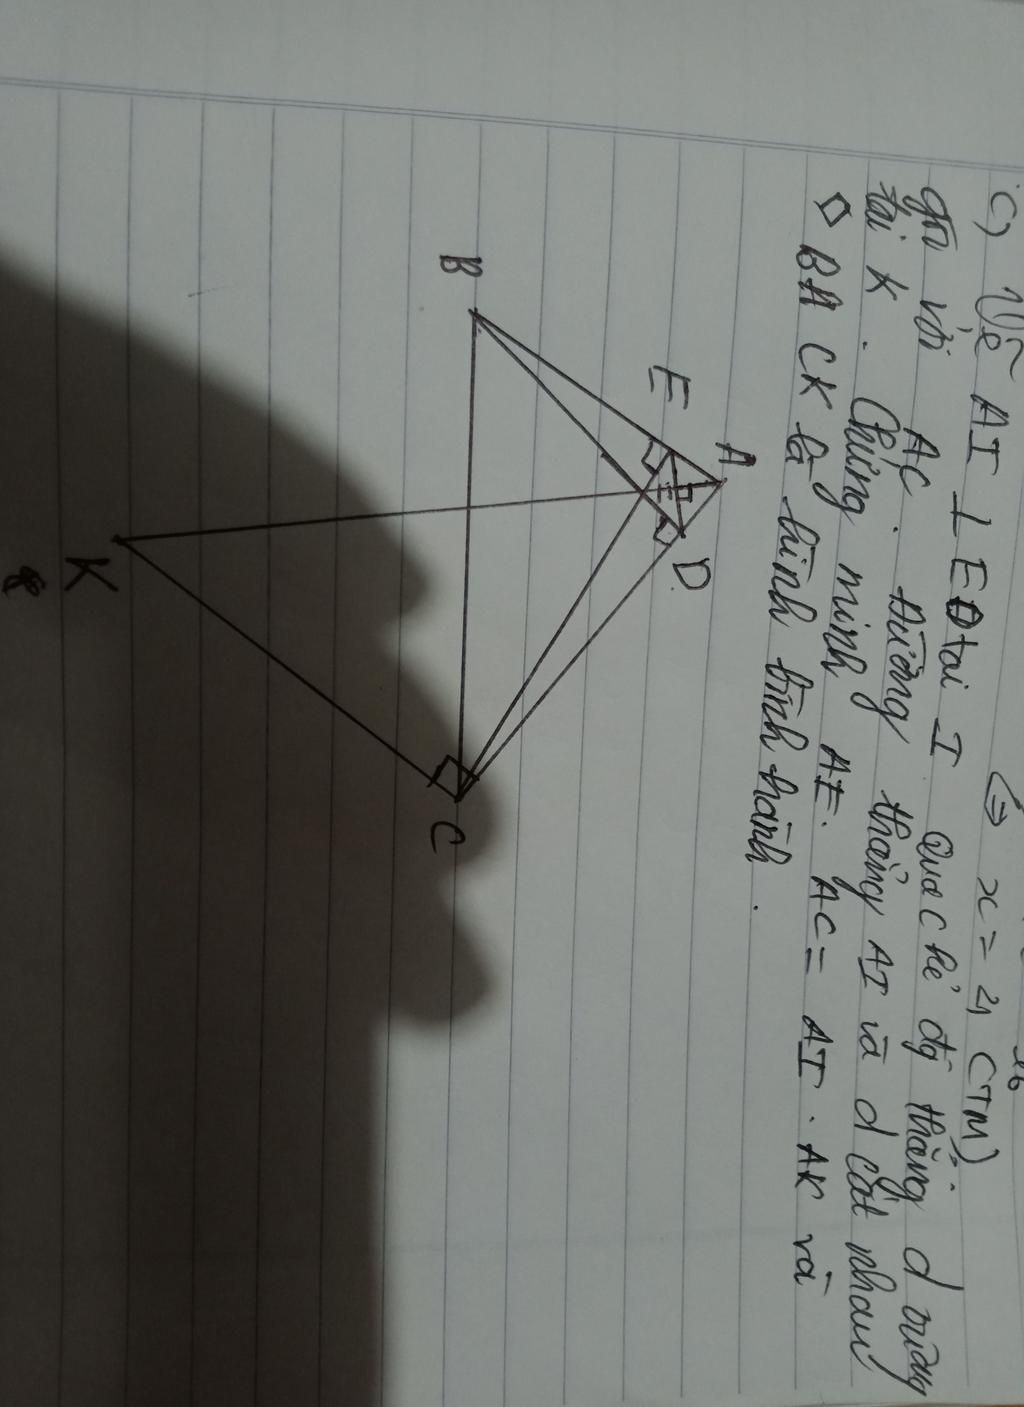 ⇔ x = 4 (TM)
c) Vẽ AI ⊥ ED tại I qua C kẻ đg thẳng d vuông
góc với AC. Đường thẳng AI và d cắt nhau
tại K. Chứng minh AE. AC = AI. AK và
◇ BA CK là hình bình hành.
A
E
D
I
B
C
K